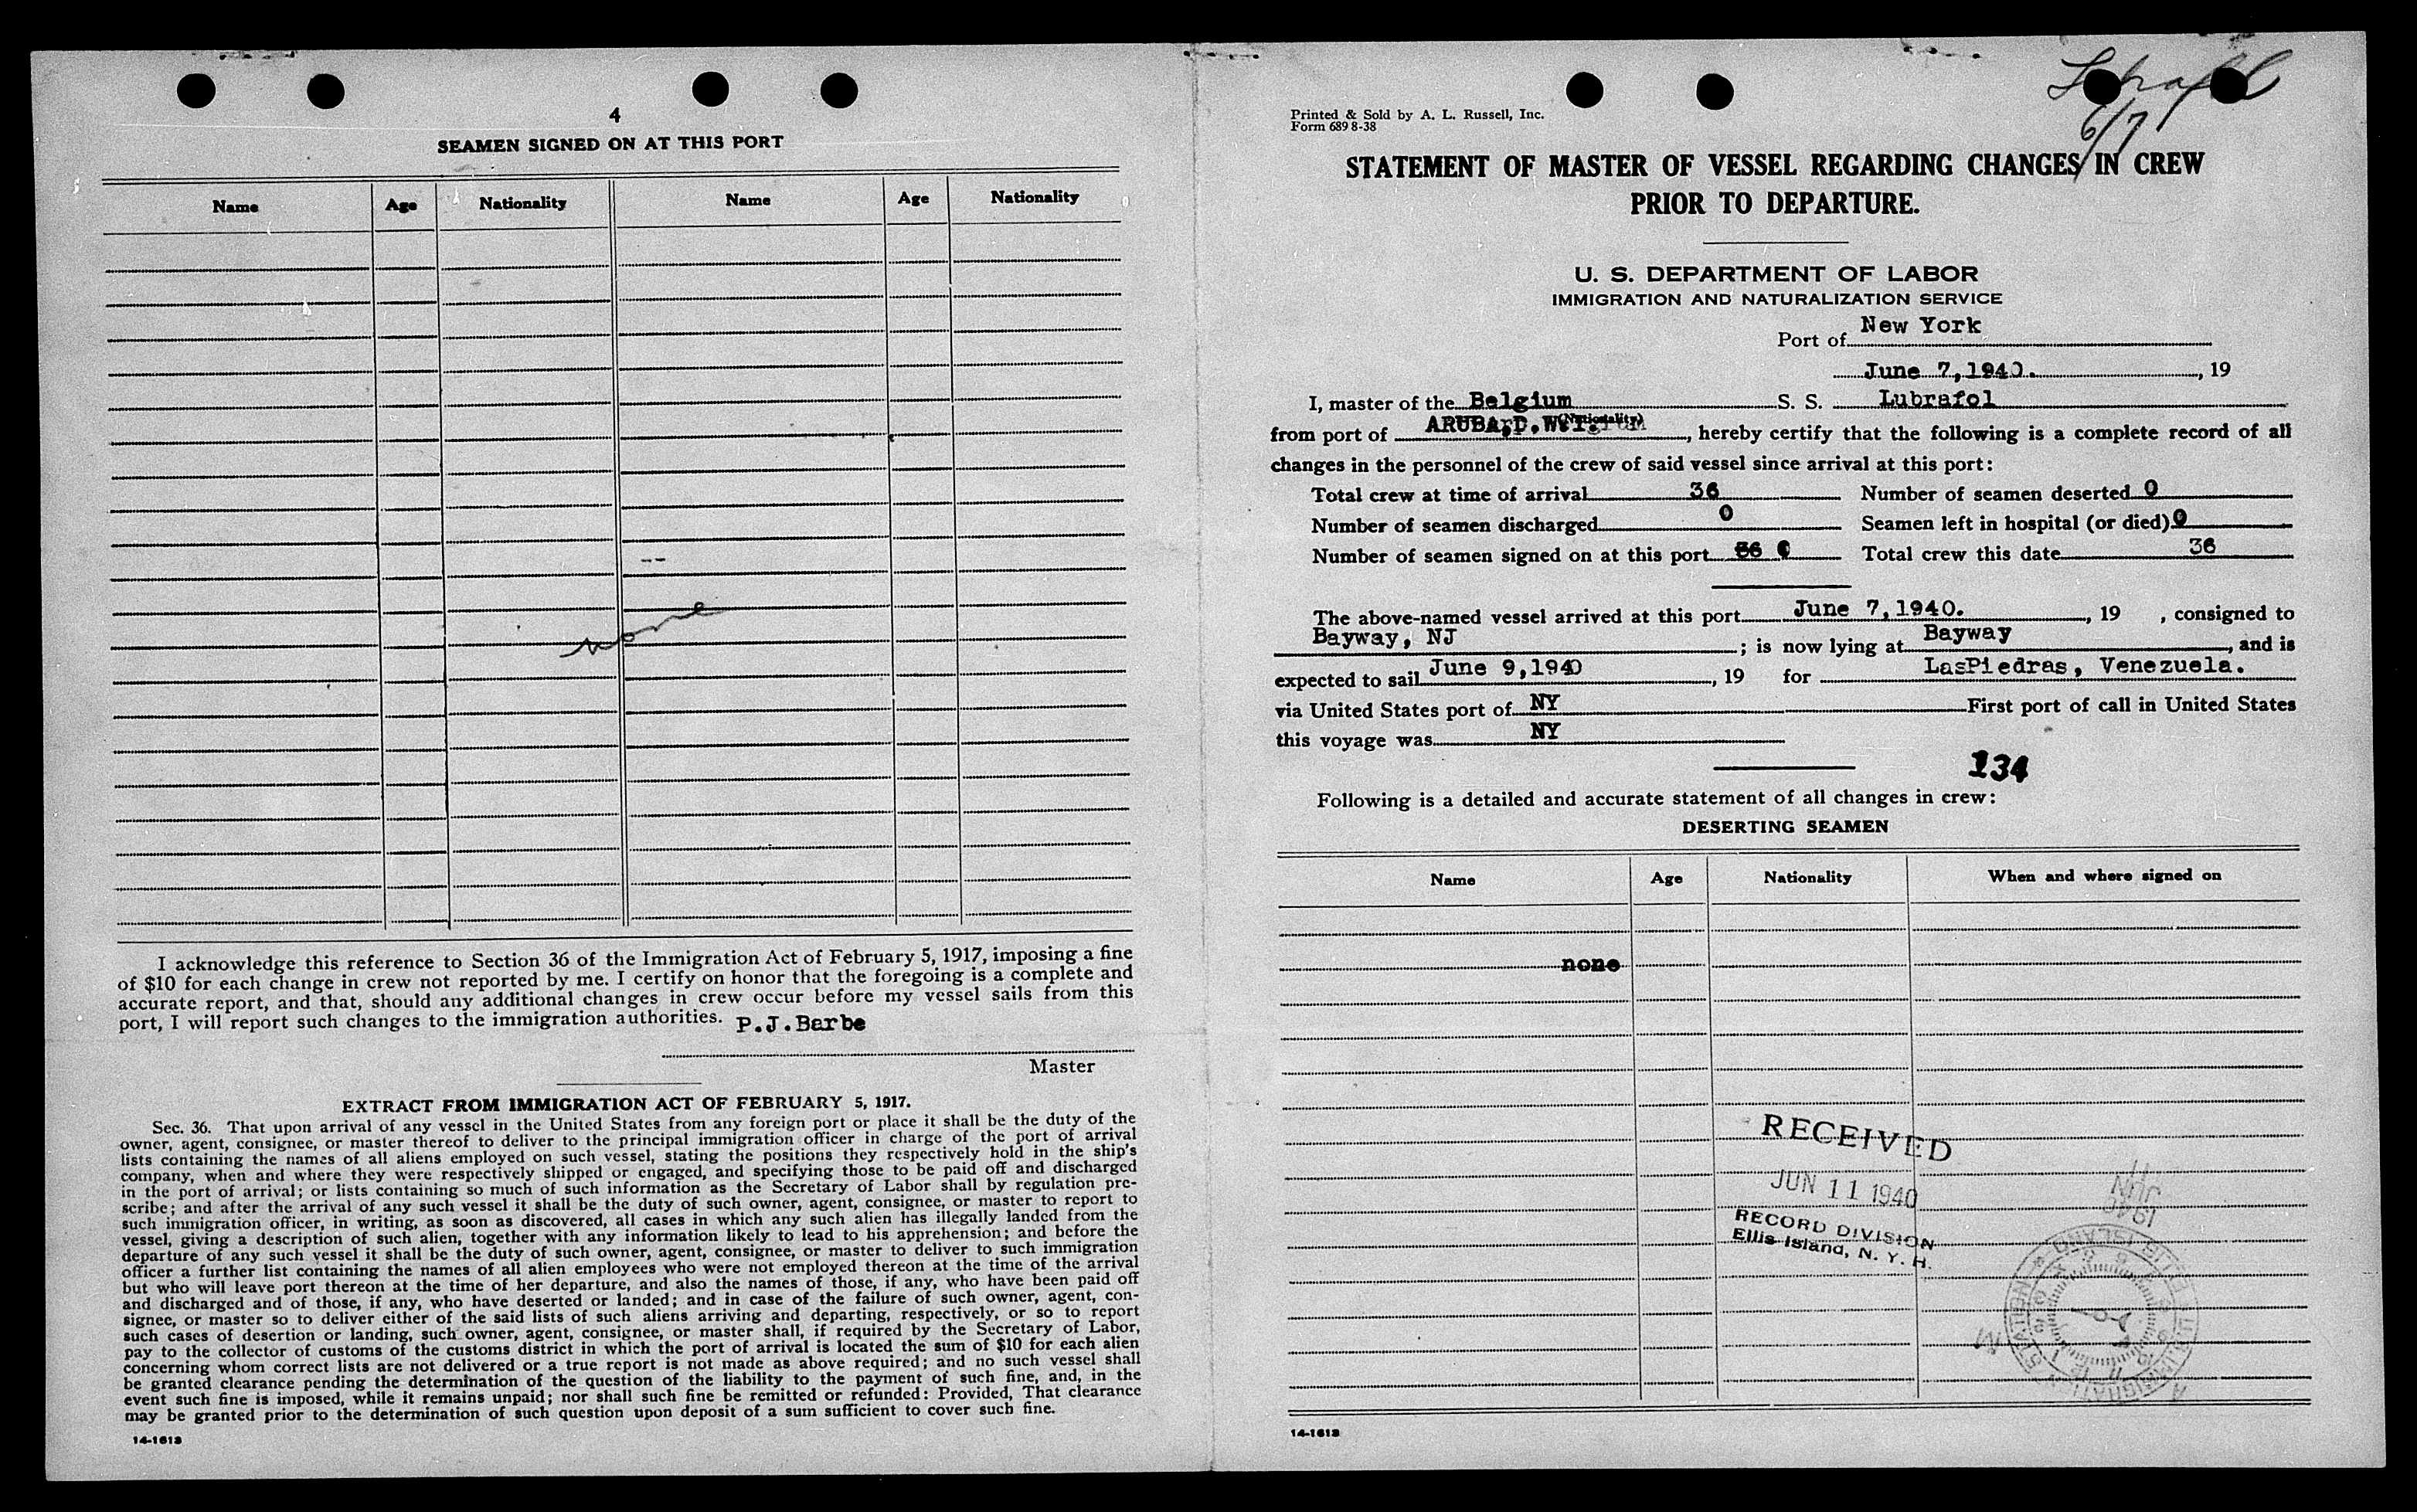 4
SEAMEN SIGNED ON AT THIS PORT
Name Age Nationality Name Age Nationality
--
none
I acknowledge this reference to Section 36 of the Immigration Act of February 5, 1917, imposing a fine
of $10 for each change in crew not reported by me. I certify on honor that the foregoing is a complete and
accurate report, and that, should any additional changes in crew occur before my vessel sails from this
port, I will report such changes to the immigration authorities. P.J.Barbe
Master
EXTRACT FROM IMMIGRATION ACT OF FEBRUARY 5, 1917.
Sec. 36. That upon arrival of any vessel in the United States from any foreign port or place it shall be the duty of the
owner, agent, consignee, or master thereof to deliver to the principal immigration officer in charge of the port of arrival
lists containing the names of all aliens employed on such vessel, stating the positions they respectively hold in the ship's
company, when and where they were respectively shipped or engaged, and specifying those to be paid off and discharged
in the port of arrival; or lists containing so much of such information as the Secretary of Labor shall by regulation pre-
scribe; and after the arrival of any such vessel it shall be the duty of such owner, agent, consignee, or master to report to
such immigration officer, in writing, as soon as discovered, all cases in which any such alien has illegally landed from the
vessel, giving a description of such alien, together with any information likely to lead to his apprehension; and before the
departure of any such vessel it shall be the duty of such owner, agent, consignee, or master to deliver to such immigration
officer a further list containing the names of all alien employees who were not employed thereon at the time of the arrival
but who will leave port thereon at the time of her departure, and also the names of those, if any, who have been paid off
and discharged and of those, if any, who have deserted or landed; and in case of the failure of such owner, agent, con-
signee, or master so to deliver either of the said lists of such aliens arriving and departing, respectively, or so to report
such cases of desertion or landing, such owner, agent, consignee, or master shall, if required by the Secretary of Labor,
pay to the collector of customs of the customs district in which the port of arrival is located the sum of $10 for each alien
concerning whom correct lists are not delivered or a true report is not made as above required; and no such vessel shall
be granted clearance pending the determination of the question of the liability to the payment of such fine, and, in the
event such fine is imposed, while it remains unpaid; nor shall such fine be remitted or refunded: Provided, That clearance
may be granted prior to the determination of such question upon deposit of a sum sufficient to cover such fine.
14-1613
Lubrafol
6/7
Printed & Sold by A. L. Russell, Inc.
Form 689 8-38
STATEMENT OF MASTER OF VESSEL REGARDING CHANGES IN CREW
PRIOR TO DEPARTURE.
U. S. DEPARTMENT OF LABOR
IMMIGRATION AND NATURALIZATION SERVICE
Port of New York
June 7, 1940. , 19
I, master of the Belgium S. S. Lubrafol
(Nationality)
from port of ARUBA, D.W.I. , hereby certify that the following is a complete record of all
changes in the personnel of the crew of said vessel since arrival at this port:
Total crew at time of arrival 36 Number of seamen deserted 0
Number of seamen discharged 0 Seamen left in hospital (or died) 0
Number of seamen signed on at this port Total crew this date 36
The above-named vessel arrived at this port June 7, 1940. , 19 , consigned to
Bayway, NJ ; is now lying at Bayway , and is
expected to sail June 9, 1940 , 19 for LasPiedras, Venezuela.
via United States port of NY First port of call in United States
this voyage was NY
134
Following is a detailed and accurate statement of all changes in crew:
DESERTING SEAMEN
Name Age Nationality When and where signed on
none
RECEIVED
JUN 11 1940
RECORD DIVISION
Ellis Island, N. Y. H.
JUN 11
1940
IMMIGRATION STATION ELLIS ISLAND
14-1613